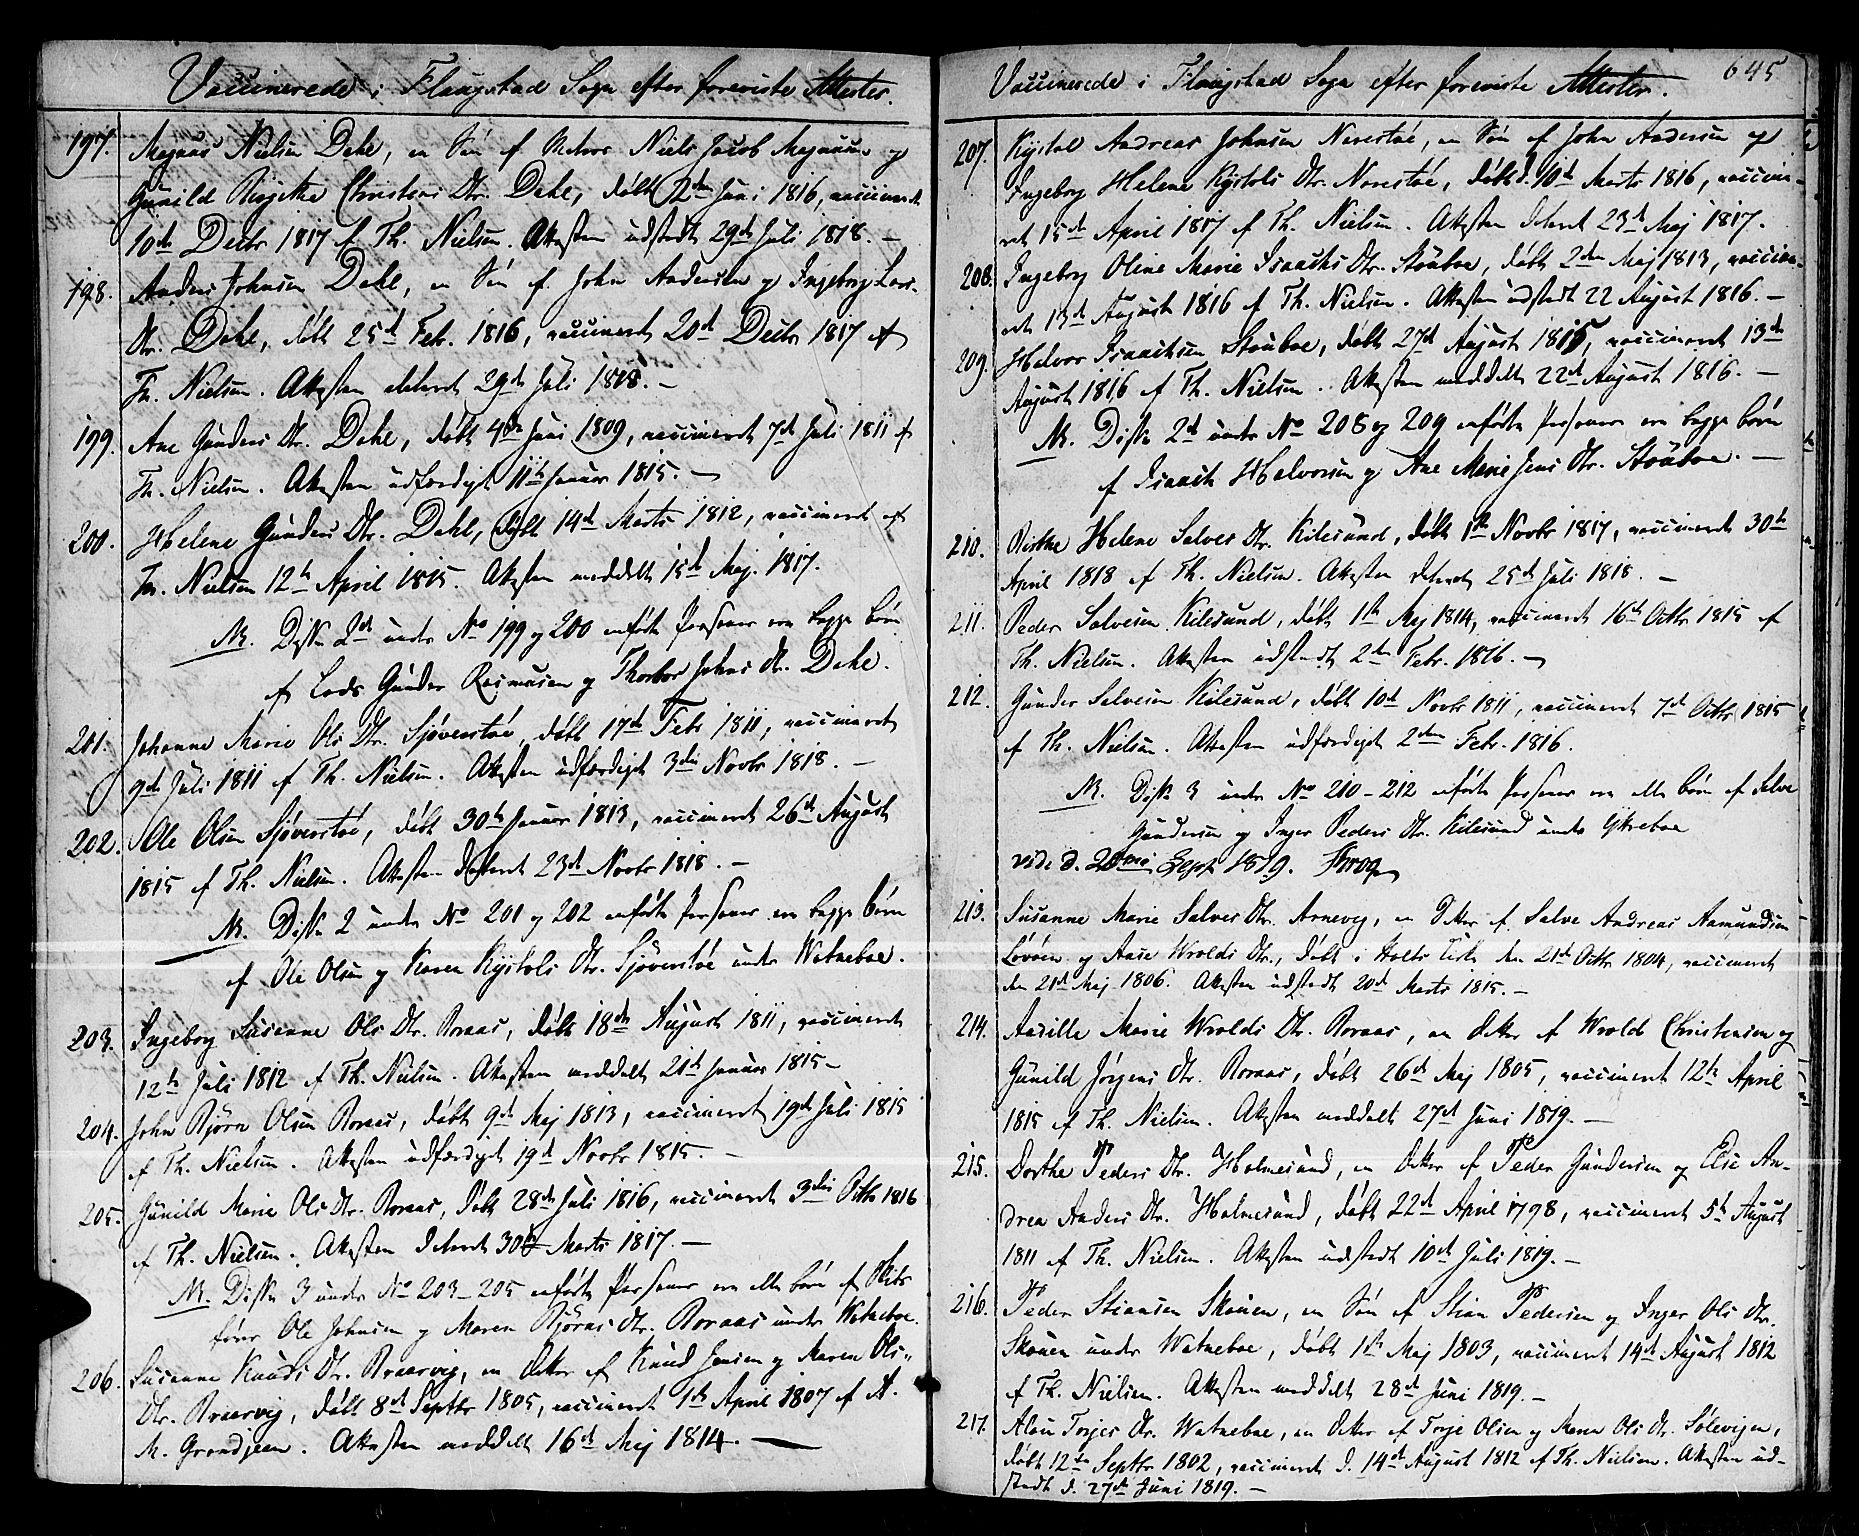 Vaccinerede i Flaugstad Sogn efter foreviste Attester.
197. Magnus Nielsen Dahl, en Søn af Niels Jacob Magnusen og
Gunild Birgitha Christens Dtr. Dahl, døbt 2den Juni 1816, vaccineret
10d Decbr 1817 af Th. Nielsen. Attesten udstædt 29d Juli 1818. –
198. Anders Johnsen Dahl, en Søn af John Andersen og Ingeborg Lars
Dtr. Dahl, døbt 25d Febr. 1816, vaccineret 20d Decbr 1817 af
Th. Nielsen. Attesten dateret 29d Juli 1818. –
199. Ane Gunders Dtr. Dahl, døbt 4de Juni 1809, vaccineret 7d Juli 1811 af
Th. Nielsen. Attesten udfærdiget 11th Januar 1815. –
200. Helene Gunders Dtr. Dahl, døbt 14d Marts 1812, vaccineret af
Th. Nielsen 12th April 1815. Attesten meddelt 15d Maj 1817.
NB. Disse 2d under No 199 og 200 anførte Personer ere begge børn
af Lods Gunder Rasmusen og Thorbor Johns Dtr. Dahl.
201. Johanne Marie Ols Dtr. Sjøverstøe, døbt 17d Febr 1811, vaccineret
9d Juli 1811 af Th. Nielsen. Attesten udfærdiget 3die Novbr 1818. –
202. Ole Olsen Sjøverstøe, døbt 30th Januar 1813, vaccineret 26d August
1815 af Th. Nielsen. Attesten dateret 23d Novbr 1818. –
NB. Disse 2 under No 201 og 202 anførte Personer ere begge børn
af Ole Olsen og Karen Kystols Dtr. Sjöverstøe under Watneboe.
203. Ingeborg Susanne Ols Dtr. Roraas, døbt 18de August 1811, vaccineret
12te Juli 1812 af Th. Nielsen. Attesten meddelt 21d Januar 1815 –
204. John Bjørn Olsen Roraas, døbt 9d Maj 1813, vaccineret 19d Juli 1815
af Th. Nielsen. Attesten udfærdiget 19d Novbr 1815. –
205. Gunild Marie Ols Dtr. Roraas, døbt 28de Juli 1816, vaccineret 3die Octbr 1816
af Th. Nielsen. Attesten dateret 30d Marts 1817. –
NB. Disse 3 under No 203–205 anførte Personer ere alle børn af Skibs
fører Ole Johnsen og Maren Bjørns Dtr. Roraas under Watneboe.
206. Susanne Knuds Dtr. Braarvig, en Datter af Knud Jensen og Maren Ols
Dtr. Braarvig, døbt 8d Septbr 1805, vaccineret 1th April 1807 af A.
M. Grondjean. Attesten meddelt 16d Maj 1814. –
Vaccinerede i Flaugstad Sogn efter foreviste Attester. 645
207. Kystol Andreas Johnsen Narestøe, en Søn af John Andersen og
Ingeborg Helene Kystols Dtr. Narestøe, døbt d. 10d Marts 1816, vaccine-
ret 15d April 1817 af Th. Nielsen. Attesten dateret 23d Maj 1817.
208. Ingeborg Oline Marie Isaachs Dtr. Stouboe, døbt 2den Maj 1813, vaccine-
ret 13d August 1816 af Th. Nielsen. Attesten udstædt 22 August 1816. –
209. Halvor Isaachsen Stouboe, døbt 27d August 1815, vaccineret 13d
August 1816 af Th. Nielsen. Attesten meddelt 22d August 1816. –
NB. Disse 2d under No 208 og 209 anførte Personer ere begge børn
af Isaach Halvorsen og Ane Marie Jens Dtr. Stouboe. –
210. Birthe Helene Salves Dtr. Kilesund, døbt 1th Novbr 1817, vaccineret 30th
April 1818 af Th. Nielsen. Attesten dateret 25d Juli 1818. –
211. Peder Salvesen Kilesund, døbt 1th Maj 1814, vaccineret 16d Octbr 1815 af
Th. Nielsen. Attesten udstædt 2den Febr. 1816. –
212. Gunder Salvesen Kilesund, døbt 10d Novbr 1811, vaccineret 7d Octbr 1815
af Th. Nielsen. Attesten udfærdiget 2den Febr. 1816.
NB. Disse 3 under No 210–212 anførte Personer ere alle børn af Salve
Gundersen og Inger Peders Dtr. Kilesund under
vidi d. Sept 1819.
213. Susanne Marie Salves Dtr. Arnevig, en Datter af Salve Andreas Aamundsen
og Aase Wrolds Dtr., døbt i Holts Kirke den 21d Octbr 1804, vaccineret
den 21d Maj 1806. Attesten udstædt 20d Marts 1815. –
214. Aasille Marie Wrolds Dtr. Roraas, en Datter af Wrold Christensen og
Gunild Jørgens Dtr. Roraas, døbt 26d Maj 1805, vaccineret 12th April
1815 af Th. Nielsen. Attesten meddelt 27d Juni 1819. –
215. Dorthe Peders Dtr. Holmesund, en Datter af Peder Gundersen og Else An-
drea Anders Dtr. Holmesund, døbt 22d April 1798, vaccineret 5th August
1811 af Th. Nielsen. Attesten udstædt 10d Juli 1819. –
216. Peder Stiansen Skouen, en Søn af Stian Pedersen og Inger Ols Dtr.
Skouen under Watneboe, døbt 1th Maj 1803, vaccineret 14d August 1812
af Th. Nielsen. Attesten meddelt 28d Juni 1819. –
217. Alou Torjes Dtr. Watneboe, en Datter af Torje Olsen og Maren Ols Dtr. Sølevigen,
døbt 12te Septbr 1802, vaccineret d. 14d August 1812 af Th. Nielsen. Attesten ud-
stædt d. 27d Juni 1819. –